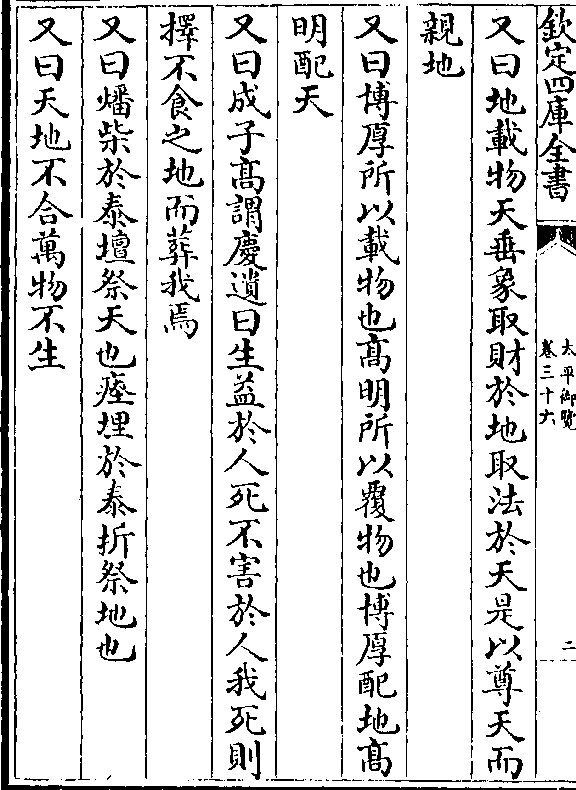 欽定四庫全書
太平御覽
卷三十六
二
又曰地載物天垂象取財於地取法於天是以尊天而
親地
又曰博厚所以載物也髙明所以覆物也博厚配地髙
明配天
又曰成子髙謂慶遺曰生益於人死不害於人我死則
擇不食之地而葬我焉
又曰燔柴於泰壇祭天也瘞埋於泰折祭地也
又曰天地不合萬物不生